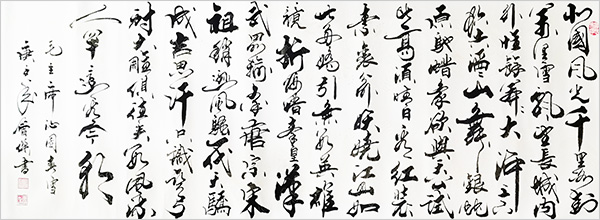 北國風光千里冰封
萬里雪飄望長城內
外惟餘莽莽大河上下
頓失滔滔山舞銀蛇
原馳蠟象欲與天公試
比高須晴日看紅裝
素裹分外妖嬈江山如
此多嬌引無數英雄
競折腰惜秦皇漢
武略輸文采唐宗宋
祖稍遜風騷一代天驕
成吉思汗只識彎弓
射大雕俱往矣數風流
人物還看今朝
毛主席沁園春雪
書